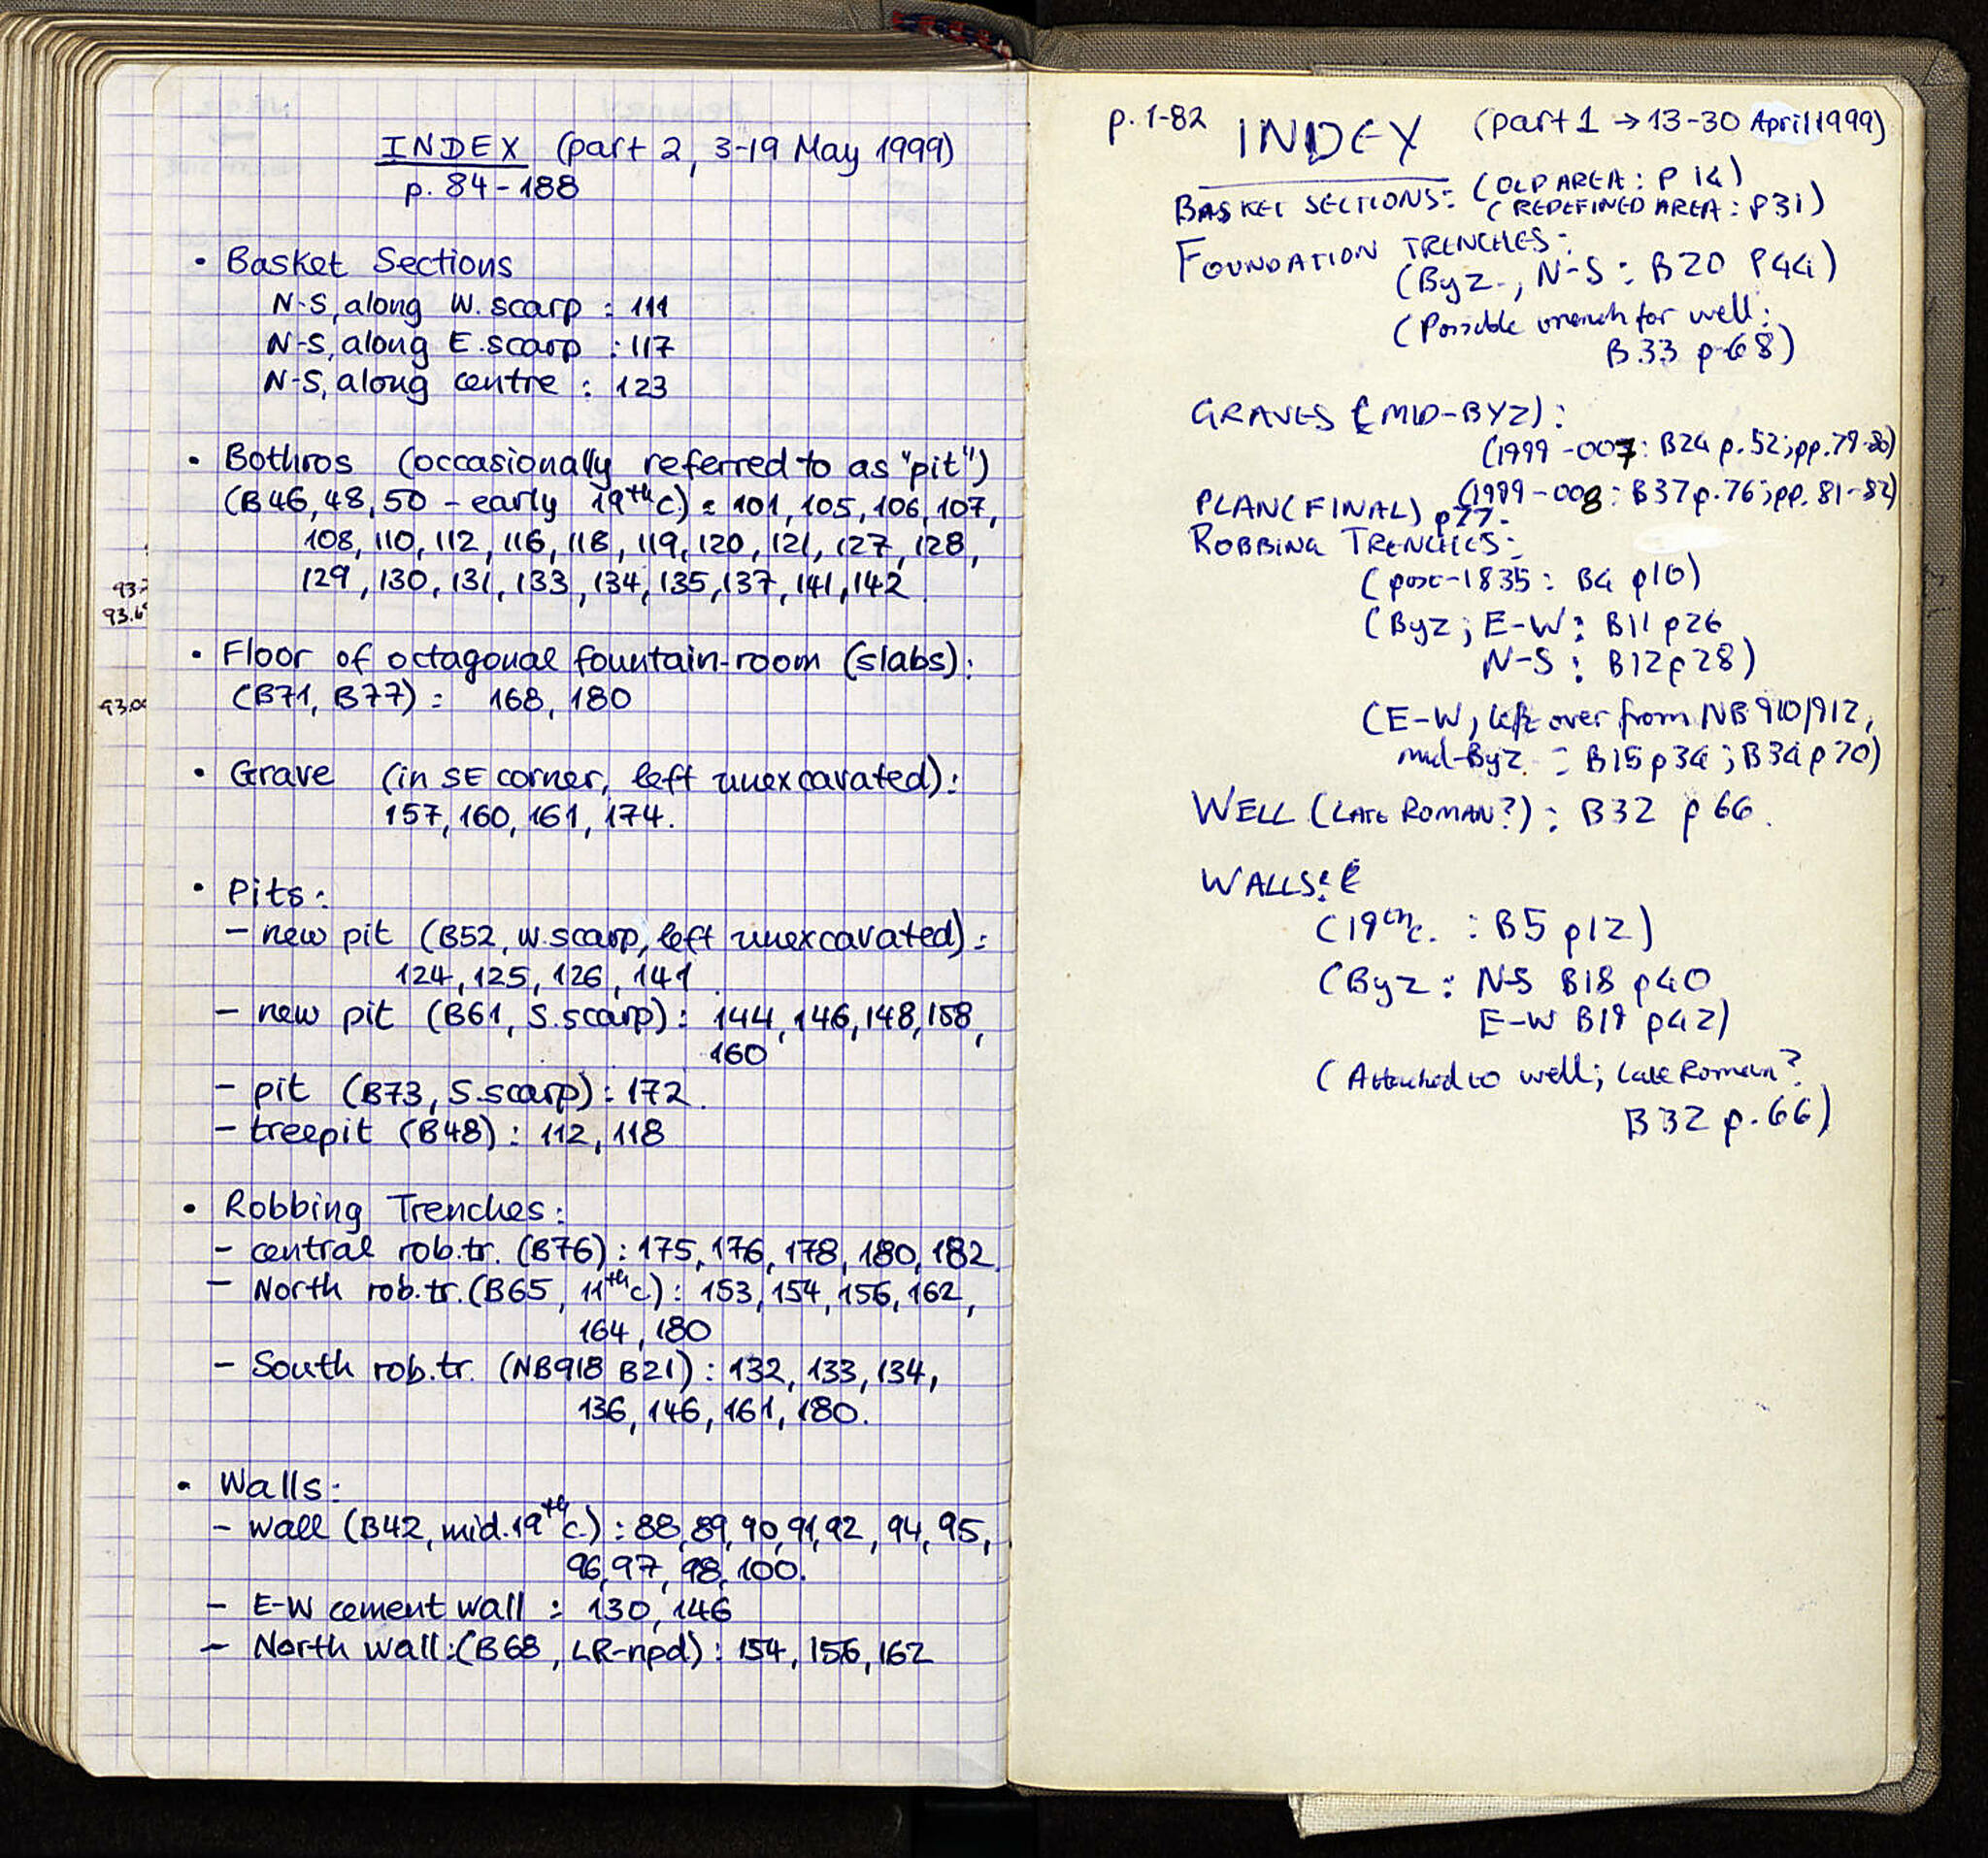 INDEX (part 2, 3-19 May 1999)
p. 84-188
• Basket Sections
N-S, along W. scarp : 111
N-S, along E. scarp : 117
N-S, along centre : 123
• Bothros (occasionally referred to as "pit")
(B46, 48, 50 - early 19th c) : 101, 105, 106, 107,
108, 110, 112, 116, 118, 119, 120, 121, 127, 128,
129, 130, 131, 133, 134, 135, 137, 141, 142.
• Floor of octagonal fountain-room (slabs):
(B71, B77) : 168, 180
• Grave (in SE corner, left unexcavated):
157, 160, 161, 174.
• Pits:
- new pit (B52, W. scarp, left unexcavated):
124, 125, 126, 141.
- new pit (B61, S. scarp): 144, 146, 148, 158,
160
- pit (B73, S. scarp): 172.
- treepit (B48): 112, 118
• Robbing Trenches:
- central rob. tr. (B76): 175, 176, 178, 180, 182.
- North rob. tr. (B65, 11th c): 153, 154, 156, 162,
164, 180
- South rob. tr. (NB918 B21): 132, 133, 134,
136, 146, 161, 180.
• Walls:
- wall (B42, mid. 19th c.): 88, 89, 90, 91, 92, 94, 95,
96, 97, 98, 100.
- E-W cement wall : 130, 146
- North wall: (B68, LR-npd): 154, 156, 162
p. 1-82 INDEX (part 1 → 13-30 April 1999)
BASKET SECTIONS: (OLD AREA: P 14)
(REDEFINED AREA: P31)
FOUNDATION TRENCHES:
(Byz., N-S: B20 P44)
(Possible trench for well:
B.33 p.68)
GRAVES (MID-BYZ):
(1999-007: B24 p. 52; pp. 79-80)
(1999-008: B37 p. 76; pp. 81-82)
PLAN (FINAL) p77.
ROBBING TRENCHES:
(post-1835: B4 p10)
(Byz; E-W: B11 p26
N-S: B12 p28)
(E-W, left over from NB 910/912,
mid-Byz. : B15 p34; B34 p70)
WELL (LATE ROMAN?): B32 p 66.
WALLS:
(19th c. : B5 p12)
(Byz: N-S B18 p40
E-W B19 p42)
(Attached to well; Late Roman?
B32 p. 66)